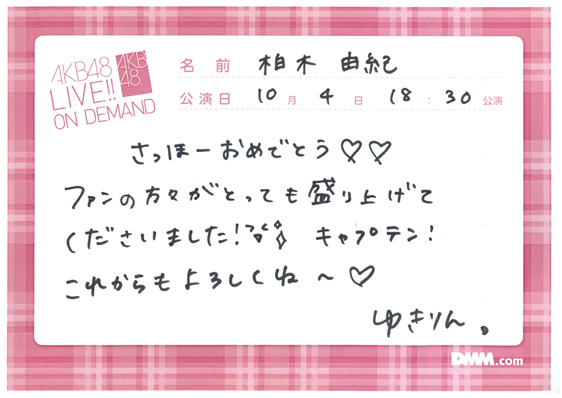 AKB48
LIVE!!
ON DEMAND
AKB
48
名前 柏木 由紀
公演日 10月 4日 18:30公演
さっほーおめでとう♡♡
ファンの方々がとっても盛り上げて
くださいました! キャプテン!
これからもよろしくね~♡
ゆきりん。
DMM.com